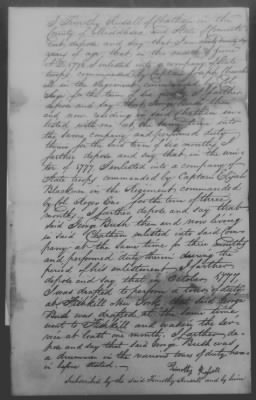 I Timothy Russell of Chatham in the
County of Middlesex and State of Connecti-
cut, depose and say that I am
years of age that in the month of June
A.D. 1776 I enlisted into a company of State
troops commanded by Captain Joseph
in the Regiment commanded by Col
Sage for the term of six months. I further
depose and say that George Bush then
and now residing in said Chatham en-
listed with me at the same time into
the same company and performed duty
therein for the said term of six months I
further depose and say that, in the win-
ter of 1777 I enlisted into a company of
State troops commanded by Captain Elijah
Blackman in the Regiment commanded
by Col Roger Enos for the term of three
months. I further depose and say that
said George Bush then and now living
in said Chatham enlisted into said Com-
pany at the same time for three months
and performed duty therein during the
period of his enlistment. I further
depose and say that in October 1777
I was drafted to perform a tour of duty
at Fishkill New York, that said George
Bush was drafted at the same time
went to Fishkill and was in the ser-
vice at least one month. I further de-
pose and say that said George Bush was
a drummer in the various tours of duty
in before stated.
Timothy Russell
Subscribed by the said Timothy Russell and by him